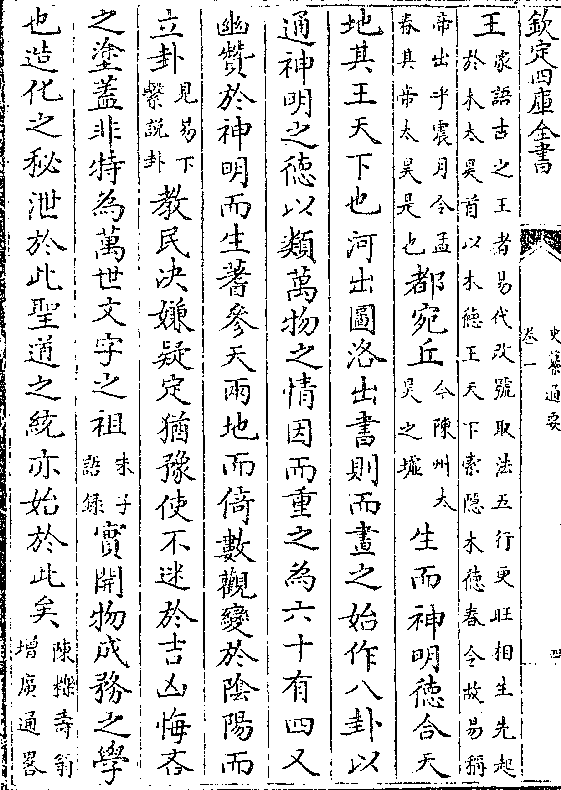 欽定四庫全書
史纂通要
卷一
四
王家語古之王者易代改號取法五行更旺相生先起
於木太昊首以木德王天下索隠木德春令故易稱
帝出乎震月令孟
春其帝太昊是也都宛丘今陳州太
昊之墟生而神明德合天
地其王天下也河出圖洛出書則而畫之始作八卦以
通神明之德以類萬物之情因而重之為六十有四又
幽贊於神明而生蓍參天兩地而倚數觀變於陰陽而
立卦見易下
繫說卦教民决嫌疑定猶豫使不迷於吉凶悔吝
之塗蓋非特為萬世文字之祖朱子
語録實開物成務之學
也造化之秘泄於此聖道之統亦始於此矣陳櫟壽翁
增廣通畧